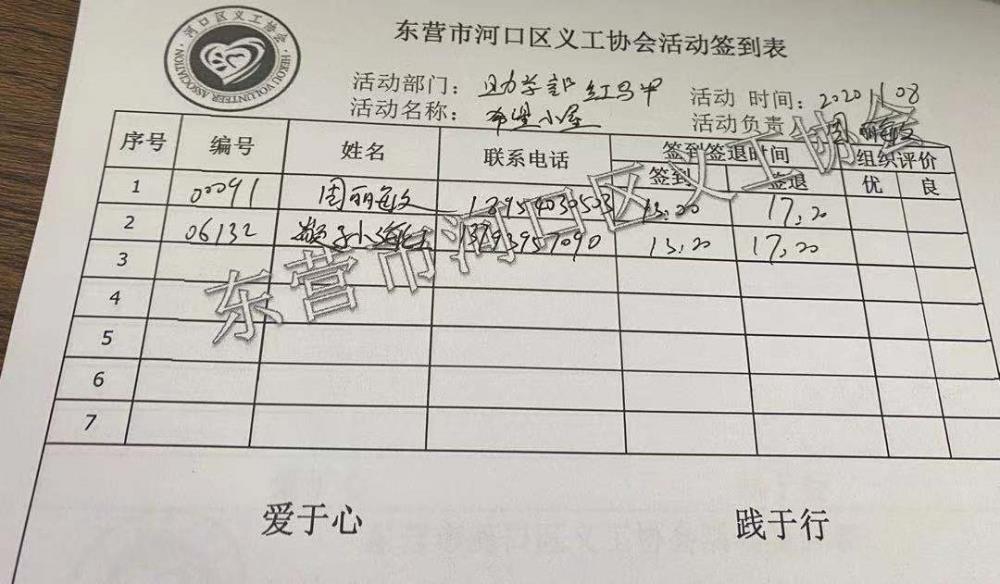 河口区义工协会
HEKOU VOLUNTEER ASSOCIATION
东营市河口区义工协会活动签到表
活动部门：助学部红马甲 活动 时间：2020 11 08
活动名称：希望小屋 活动负责人 周丽敏
序号 编号 姓名 联系电话 签到签退时间 组织评价
签到 签退 优 良
1 00091 周丽敏 13954030503 15.20 17.20
2 06132 15.20 17.20
3
4
5
6
7
东营市河口区义工协会
爱于心 践于行